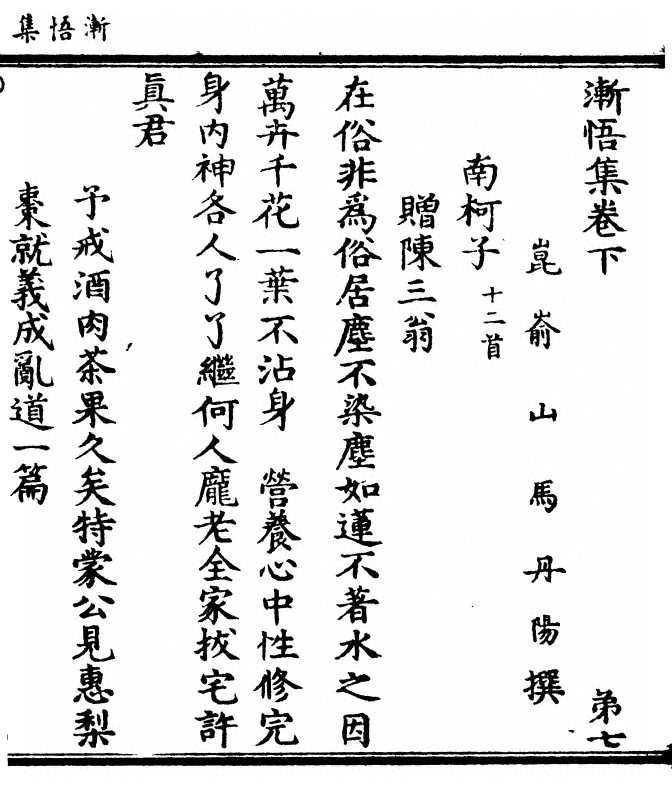 漸悟集
漸悟集卷下　第七
崑嵛山馬丹陽撰
南柯子十二首
贈陳三翁
在俗非爲俗居塵不染塵如蓮不著水之因
萬卉千花一葉不沾身　營養心中性修完
身內神各人了了繼何人龐老全家拔宅許
眞君
予戒酒肉茶果久矣特蒙公見惠梨
棗就義成亂道一篇